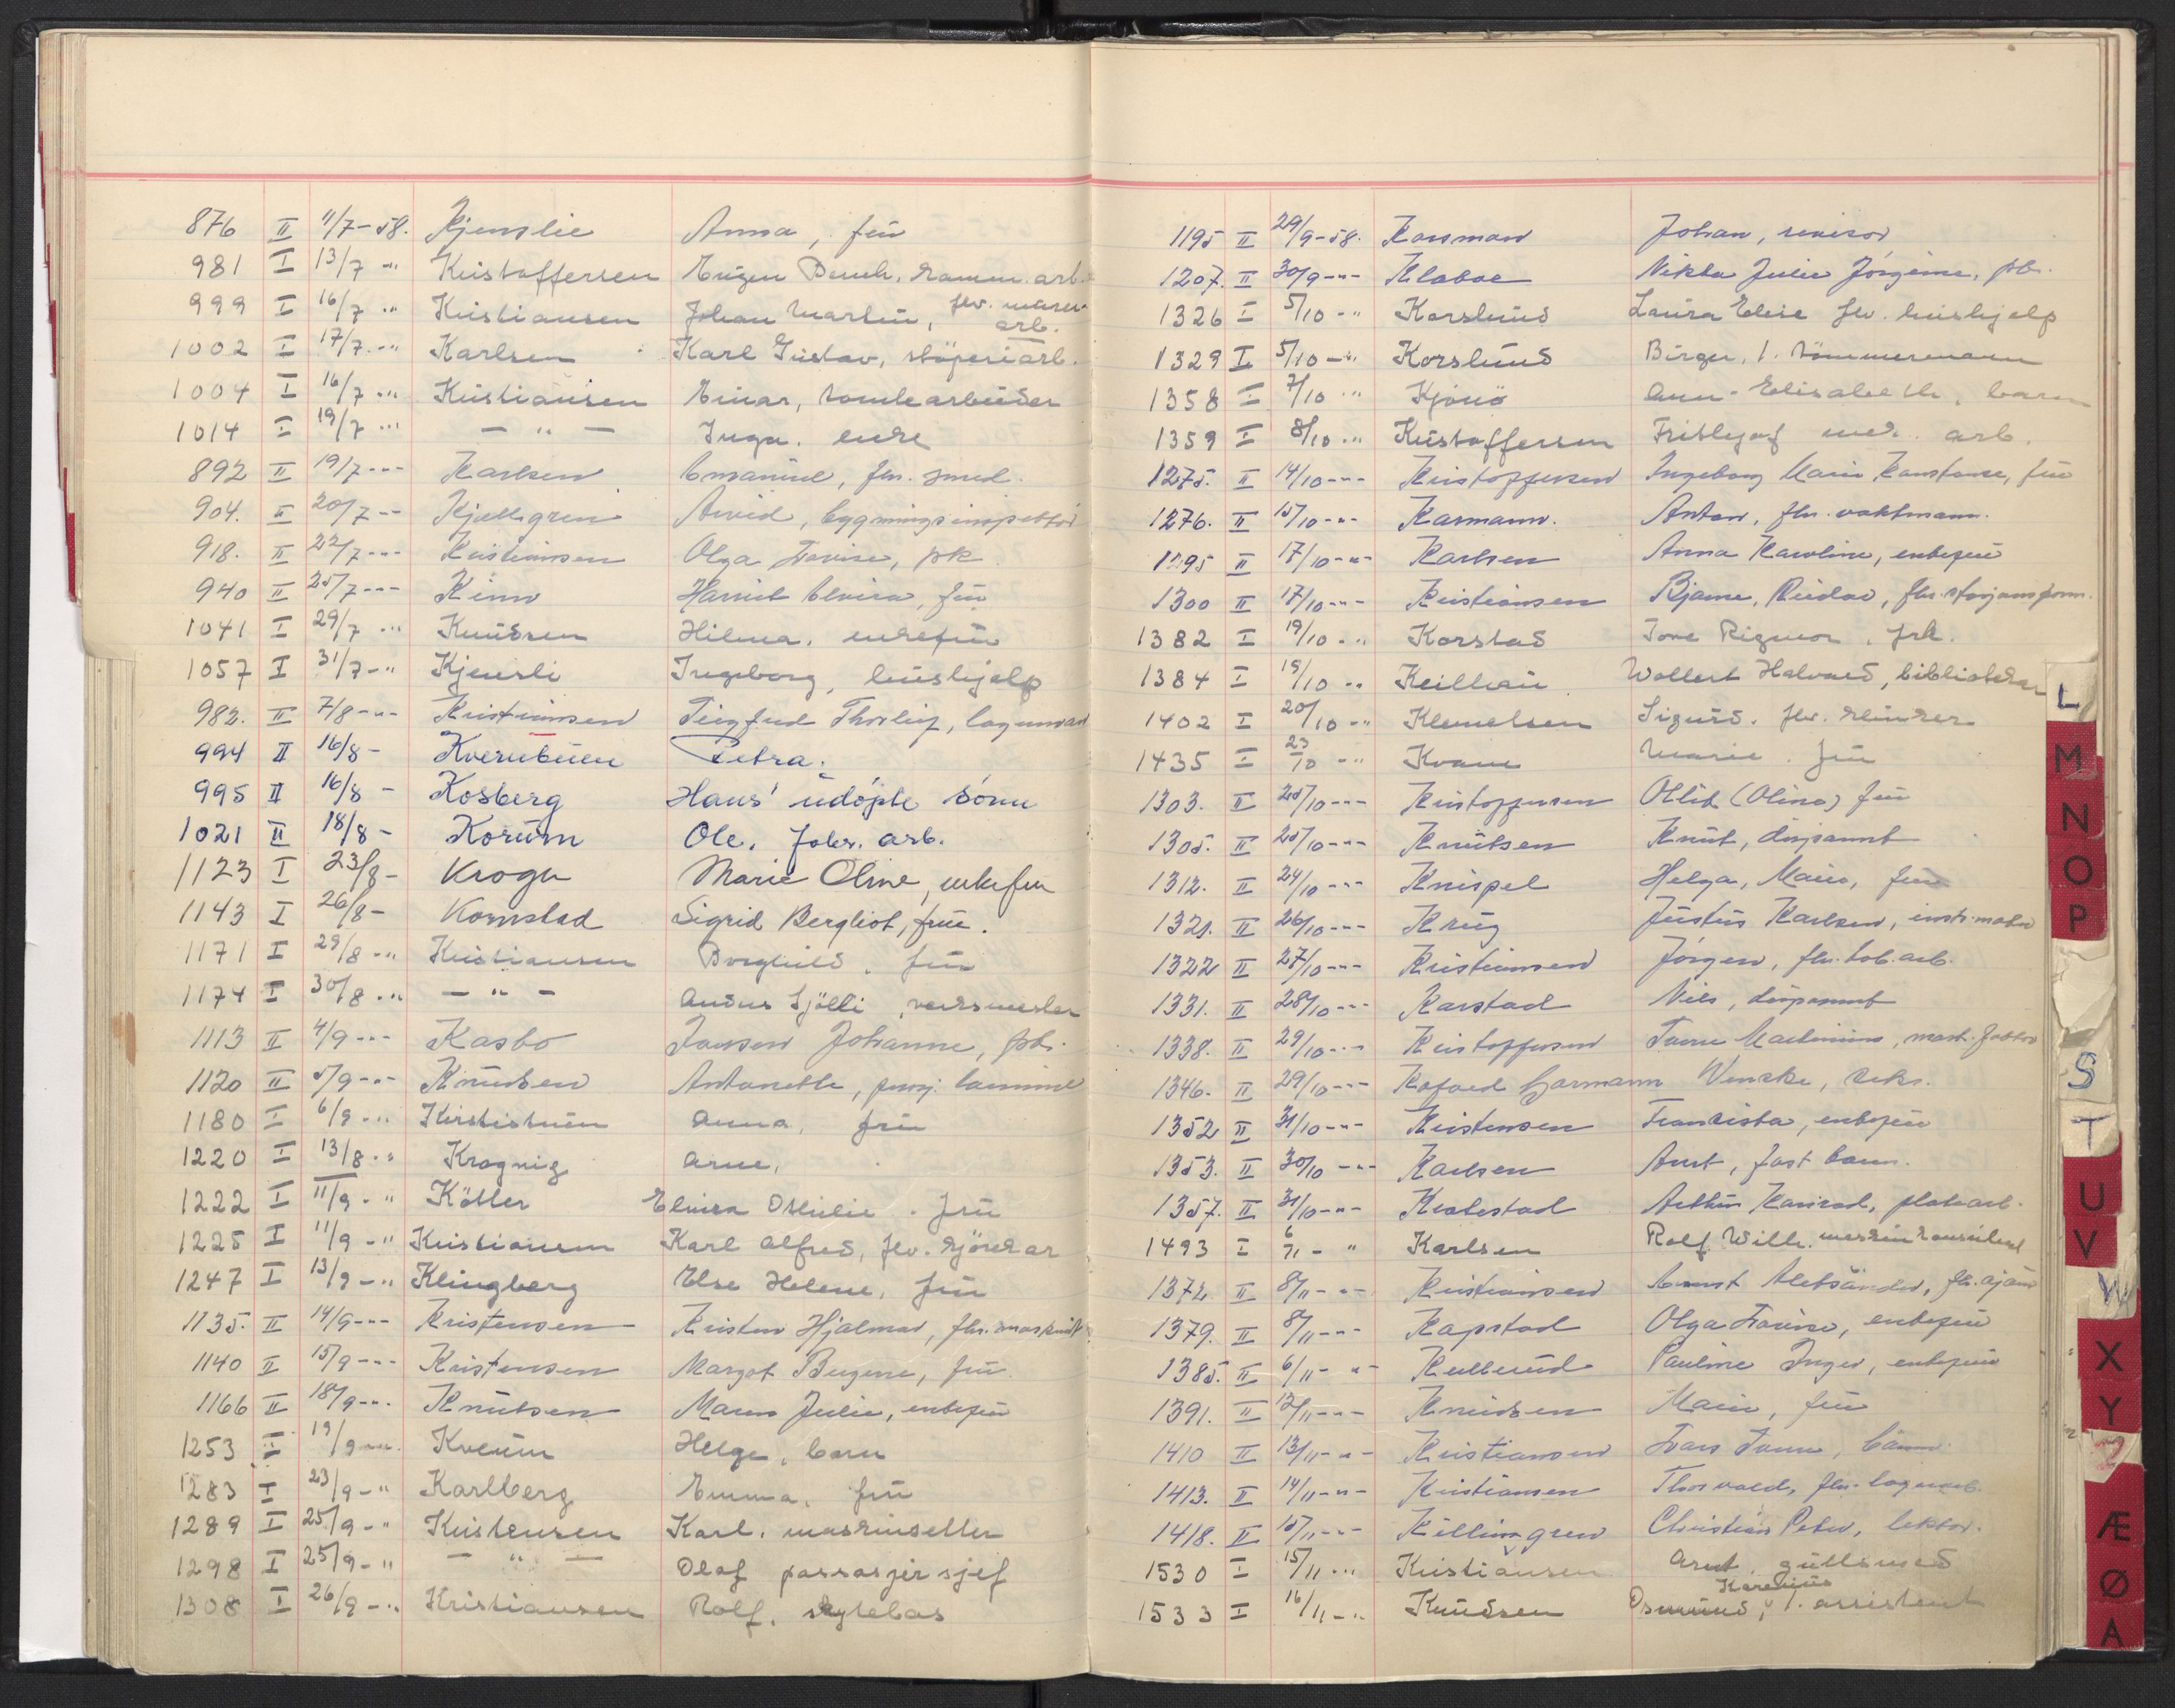 876 II 11/7-58. Kjenslie Anna, frü
981 I 13/7 -" Kristoffersen Eugen Bernh. komm. arb.
999 I 16/7 -" Kristiansen Johan Martin, flv. murer-arb.
1002 I 17/7 -" Karlsen Karl Gustav, støperiarb.
1004 I 16/7 -" Kristiansen Einar, tomtearbeider
1014 I 19/7 -" — " — Inga. enke
892 II 19/7 --- Karlsen Emanuel, fhv. smed.
904. II 20/7 -- Kjellgren Arvid, bygningsinspektør
918. II 22/7 --- Kristiansen Olga Lovise, pk.
940 II 25/7 --- Kinn Harriet Elvira, frü
1041 I 29/7 -" Knudsen Hilma. enkefrü
1057 I 31/7 -" Kjensli Ingeborg, hüshjelp
982. II 7/8 -"- Kristiansen Thorleif, lagermann
994 II 16/8 - Kvernbüen Petra.
995 II 16/8 - Kosberg Hans' üdøpte sønn
1021 II 18/8 - Korüm Ole. fabr. arb.
1123 I 23/8 - Krogh Marie Oline, enkefru
1143 I 26/8 - Kornstad Sigrid Bergliot, frue.
1171 I 29/8 -" Kristiansen Borghild. frü
1174 I 30/8 -" — " — Anders Sjølli, verksmester
1113 II 4/9 --- Kasbo Johanne, pk.
1120 II 5/9 -"- Knudsen Antonette, pensj.
1180 I 6/9 -" Kirstistuen Anna, frü
1220 I 13/8 -" Krognig Arne,
1222 I 11/9 -" Køller Elvira Othilie. frü
1225 I 11/9 -" Kristiansen Karl Alfred, flv. kjørekar
1247 I 13/9 -" Klingberg Else Helene, frü
1135. II 14/9 --- Kristensen Kristen Hjalmar, fhv. maskinist
1140 II 15/9 --- Kristensen Margot Eugenie, frü.
1166 II 18/9 --. Knutsen Maren Julie, enkefrü
1253 I 19/9 -". Kveüm Helge, barn
1283 I 23/9 -" Karlberg Emma, frü
1289 I 25/9 -" Kristensen Karl. maskinsetter
1298 I 25/9 -" — " — Olaf passasjersjef
1308 I 26/9 -" Kristiansen Rolf. skytebas
1195 II 29/9-58. Korsman Johan, revisor
1207. II 30/9 -"- Klaboe Nikka Julie Jørgine, pk.
1326 I 5/10 -" Korslund Laura Elise flv. hüshjelp
1329 I 5/10 -" Korslund Birger, 1. tømmermann
1358 I 7/10 -" Kjønø Ann-Elisabeth, barn
1359 I 8/10 -" Kristoffersen Frithjof mek. arb.
1275. II 14/10 --- Kristoffersen Ingeborg Marie Konstanse, frü
1276. II 15/10 -"- Karmann. Anton, fhv. vaktmann.
1295 II 17/10 -"- Karlsen Anna Karoline, enkefrü
1300 II 17/10 -"- Kristiansen Bjarne, Reidar, fhv.
1382 I 19/10 -" Korstad Tove Rigmor. frk.
1384 I 19/10 -" Keilhau Wollert Halvard, bibliotekar
1402 I 20/10 -" Klemetsen Sigurd. flv. klinker
1435 I 23/10 -" Kvam Marie. frü
1303. II 25/10 --- Kristoffersen (Olina) frü
1305. II 25/10 --- Knutsen Knut, disponent
1312. II 24/10 --- Knispel Helga, Marie, frü
1321. II 26/10 --- Krüg Justus Karlsen, instr.maker
1322 II 27/10 --- Kristiansen Jørgen, fhv. tob.arb.
1331. II 28/10 --- Karstad Nils, disponent
1338. II 29/10 --- Kristoffersen Martinius, mask.
1346. II 29/10 --- Kofoed Garmann Wencke, seks.
1352 II 31/10 -"- Kristensen Franziska, enkefrü
1353. II 30/10 --- Karlsen Anst, fast barn.
1357. II 31/10 -"- Krakstad Arthur Konrad, platearb.
1493 I 6/11 - " Karlsen Rolf Wilh. maskinkonsulent
1372. II 8/11 -"- Kristiansen Ernst Aleksander,
1379. II 8/11 --- Kapstad Olga Lovise, enkefrü
1385. II 6/11 - "- Kulterüd Pauline Inger, enkefrü
1391. II 12/11 -"- Knudsen Marie, frü
1410 II 13/11 -"- Kristiansen barn.
1413. II 14/11 -"- Kristiansen Thorvald, fhv. lagerarb.
1418. II 15/11 --- Killingren Christian Peter, lektor.
1530 I 15/11 -" Kristiansen Arnt, güllsmed
Karenius
1533 I 16/11 -" Knudsen Osmund, 1. assistent
L
M
N
O
P
S
T
U
V
W
X
Y
Z
Æ
Ø
A